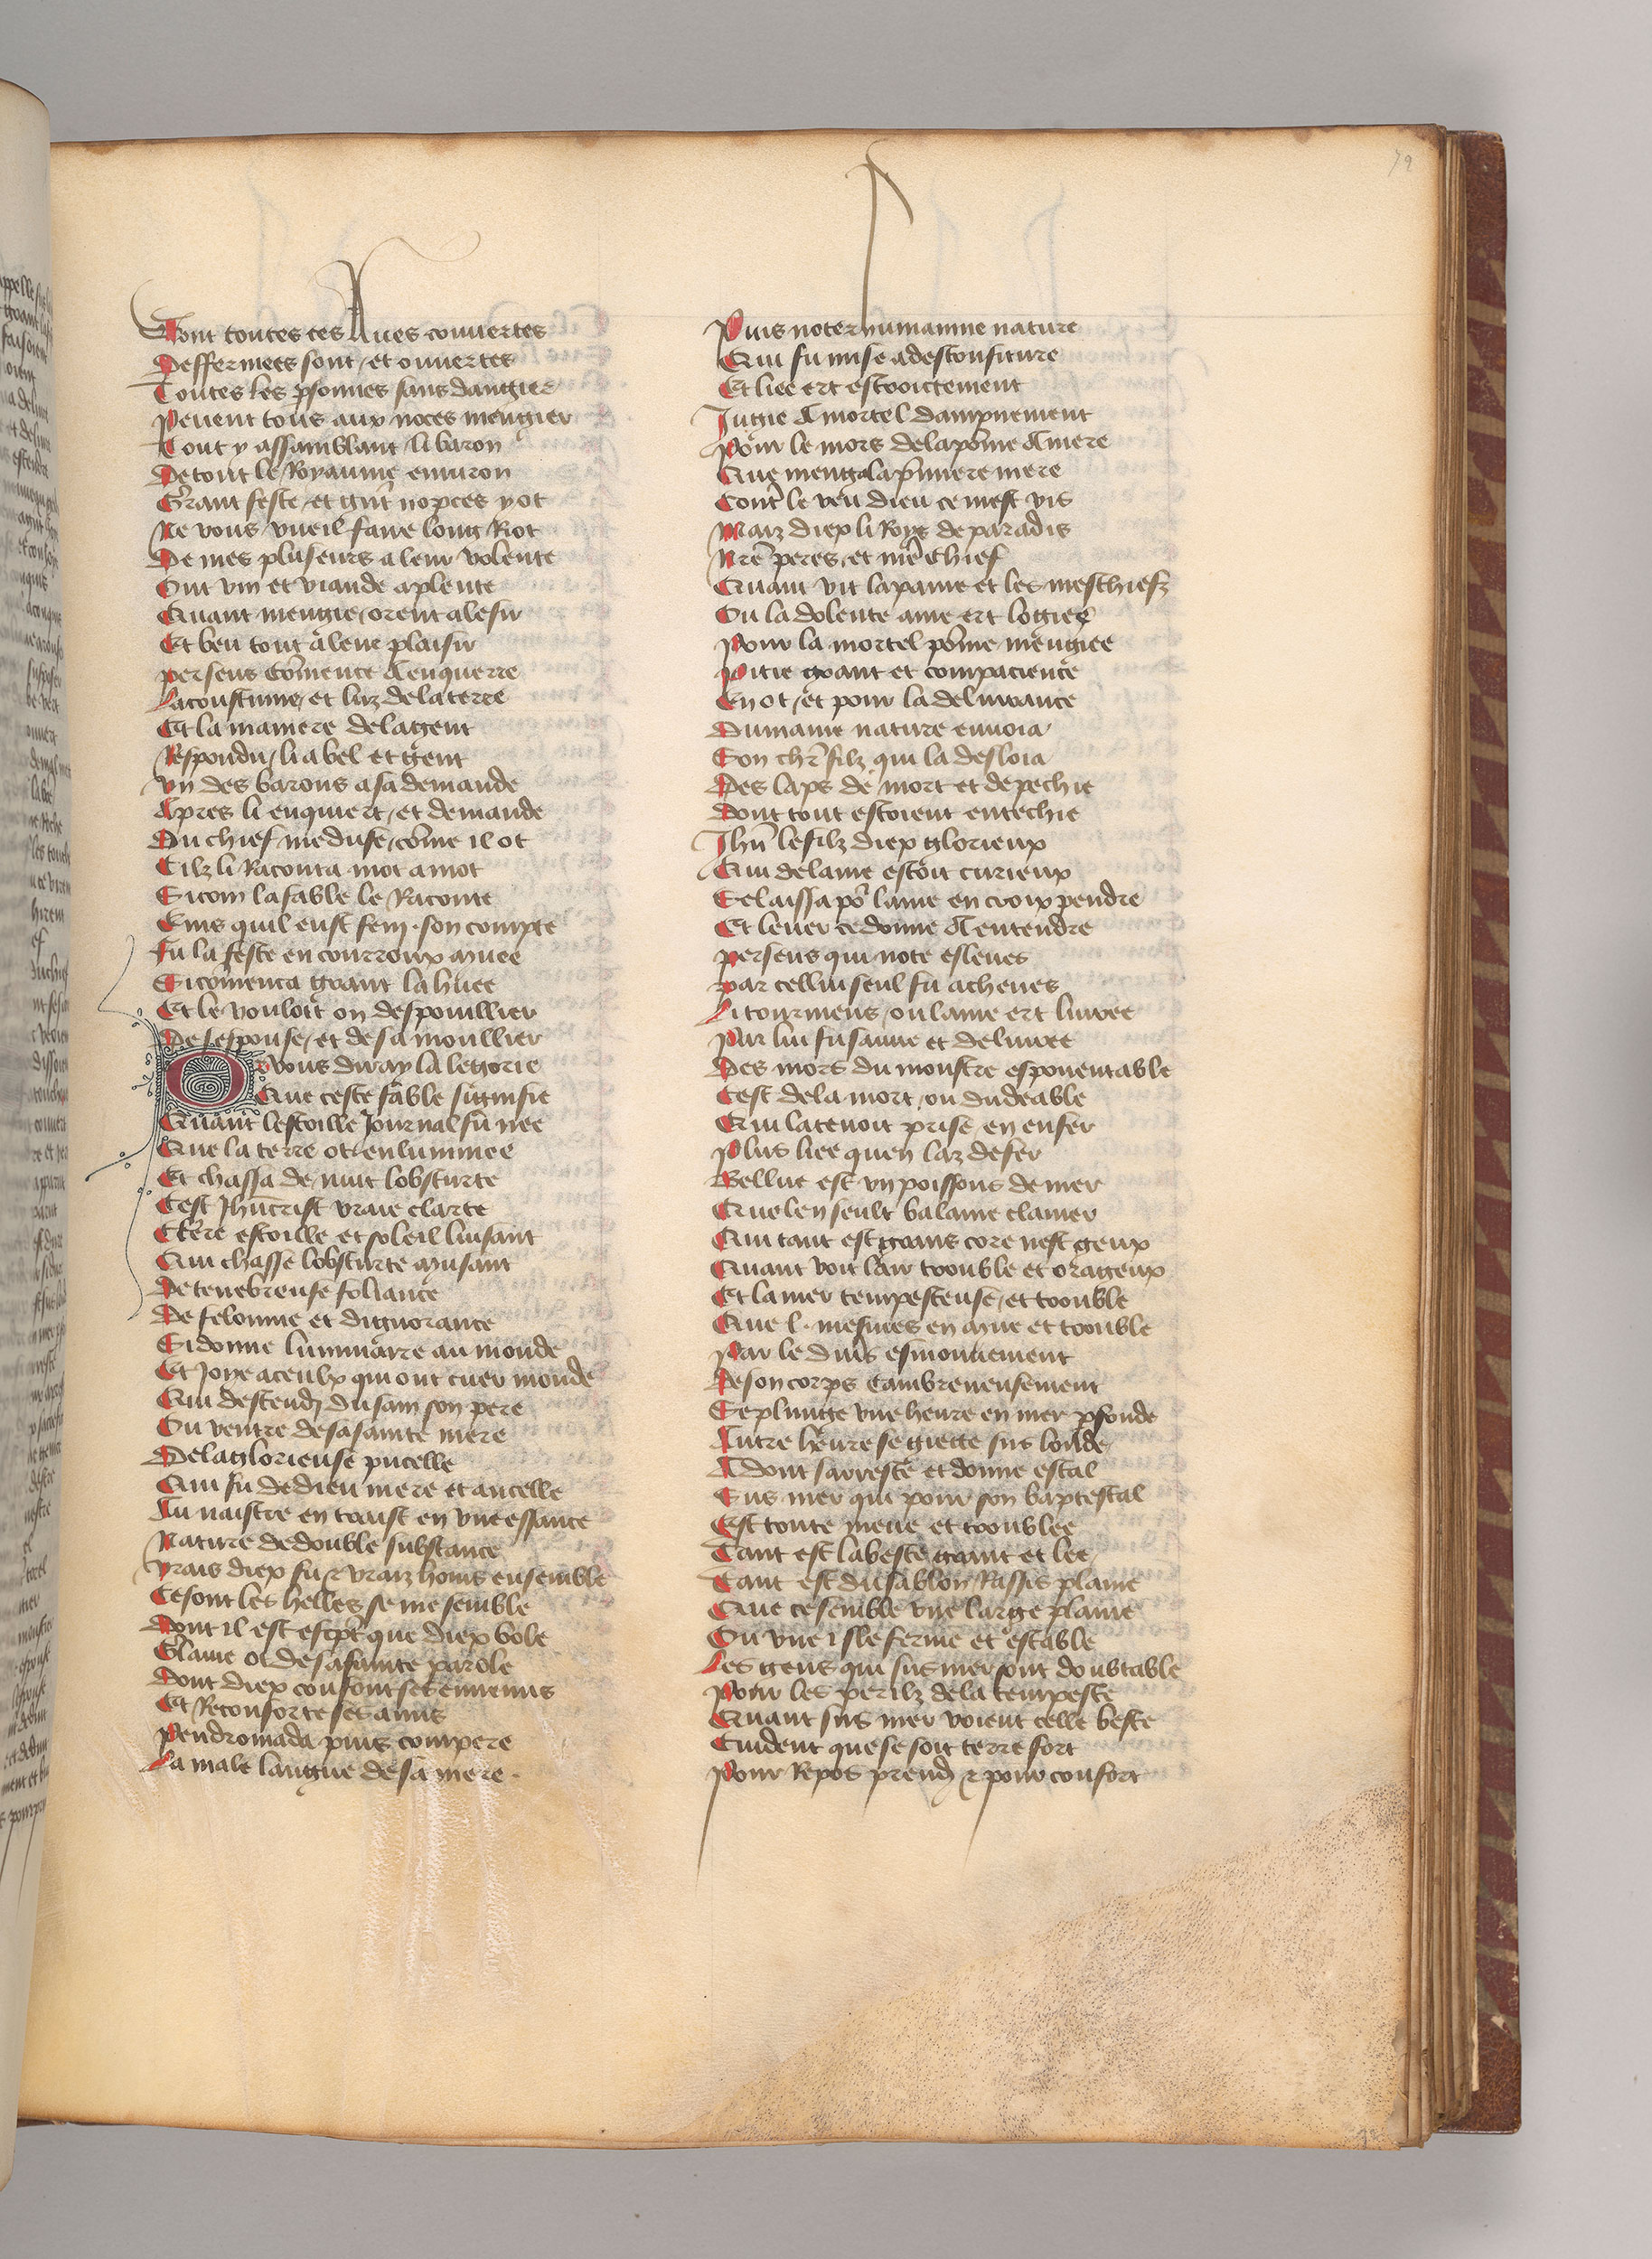 79
Sont toutes ces Aues couuertes
Deffermees sont et ouuertes
Toutes les psonnes sans dangier
Peuent tous aux noces mengier
Tout y assamblant li baron
De tout le Royaume enuiron
Grant feste et gnt nopces y ot
Ne vous vueil faire long Riot
De mes pluseurs a leur volente
Ont vin et viande a plente
Quant mengie orent a lesir
Et beu tout a leur plaisir
perseus comence A enquerre
La coustume et luz de la terre
Et la maniere de la gent
Respondu li a bel et gent
Vn des barons a sa demande
Apres li enquiert et demande
Du chief meduse come il ot
Cilz li Raconta mot a mot
Si com la fable le Raconte
Eins quil eust feni son compte
Fu la feste en courroux muee
Si comenca grant la huee
Et le vouloit on despouillier
De sespouse et de sa moullier
Or vous diray la legorie
Que ceste fable signifie
Quant lestoille Journal fu nee
Que la terre ot enluminee
Et chassa de nuit lobscurte
Cest Jhucrist vraie clarte
Clere estoille et soleil luisant
Qui chasse lobscurte nuisant
De tenebreuse foliance
De felonnie et dignorance
Si donne luminaire au monde
Et Joye a ceulx qui ont cuer monde
Qui descendi du sain son pere
Ou ventre de sa sainte mere
De la glorieuse pucelle
Qui fu de dieu mere et ancelle
Au naistre en traist en vne essance
Nature de double substance
Vrais diex fu et vraiz homs ensemble
Ce sont les helles se me semble
Dont il est escpt que diex vole
Glaiue ot de sa sainte parole
Dont diex confont ses ennemis
Et Reconforte ses amis
Pendromada puis compere
La male langue de sa mere
Puis noter humainne nature
Qui fu mise a desconfiture
Et liee ert estroictement
Jugie A mortel dampnement
Pour le mors de la pome Amere
Que menga la pmiere mere
Cont le veu dieu ce mest vis
Maiz diex li Roys de paradis
Nre peres et nre chief
Quant vit la paine et les meschiefz
Ou la dolente ame ert logiee
Pour la mortel pome mengiee
Pitie grant et compacience
En ot et pour la deliurance
Dumaine nature enuoia
Son chr filz qui la desloia
Des laps de mort et de pechie
Dont tout estoient entechie
Jhu le filz diex glorieux
Qui de lame estoit curieux
Se laissa po lame en croix pendre
Et leuer ce donne A entendre
perseus qui note esleues
par cellui seul fu acheues
Li tourmens ou lame ert liuree
Par lui fu sauue et deliuree
Des mors du monstre espouentable
Cest de la mort ou du deable
Qui la tenoit prise en enfer
Plus liee quen laz de fer
Bellue est vn poissons de mer
Que len seult balaine clamer
Qui tant est grans core nest geux
Quant voit lair trouble et orageux
Et la mer tempesteuse et trouble
Que l mesmes en mue et trouble
Par le divis esmouuement
De son corps tambreneusement
Se plunge vne heure en mer pfonde
Autre heure se giette sus londe
A dont sarreste et donne estal
Sus mer qui pour son baptestal
Est toute meue et troublee
Tant est la beste grant et lee
Tant est du sablon Rassis plaine
Que ce semble vne large plaine
Ou vne isle ferme et estable
Les gens qui sus mer sont doubtable
Pour les perilz de la tempeste
Quant sus mer voient celle beste
Cuident que se soit terre fort
Pour Repos prendre et pour confort